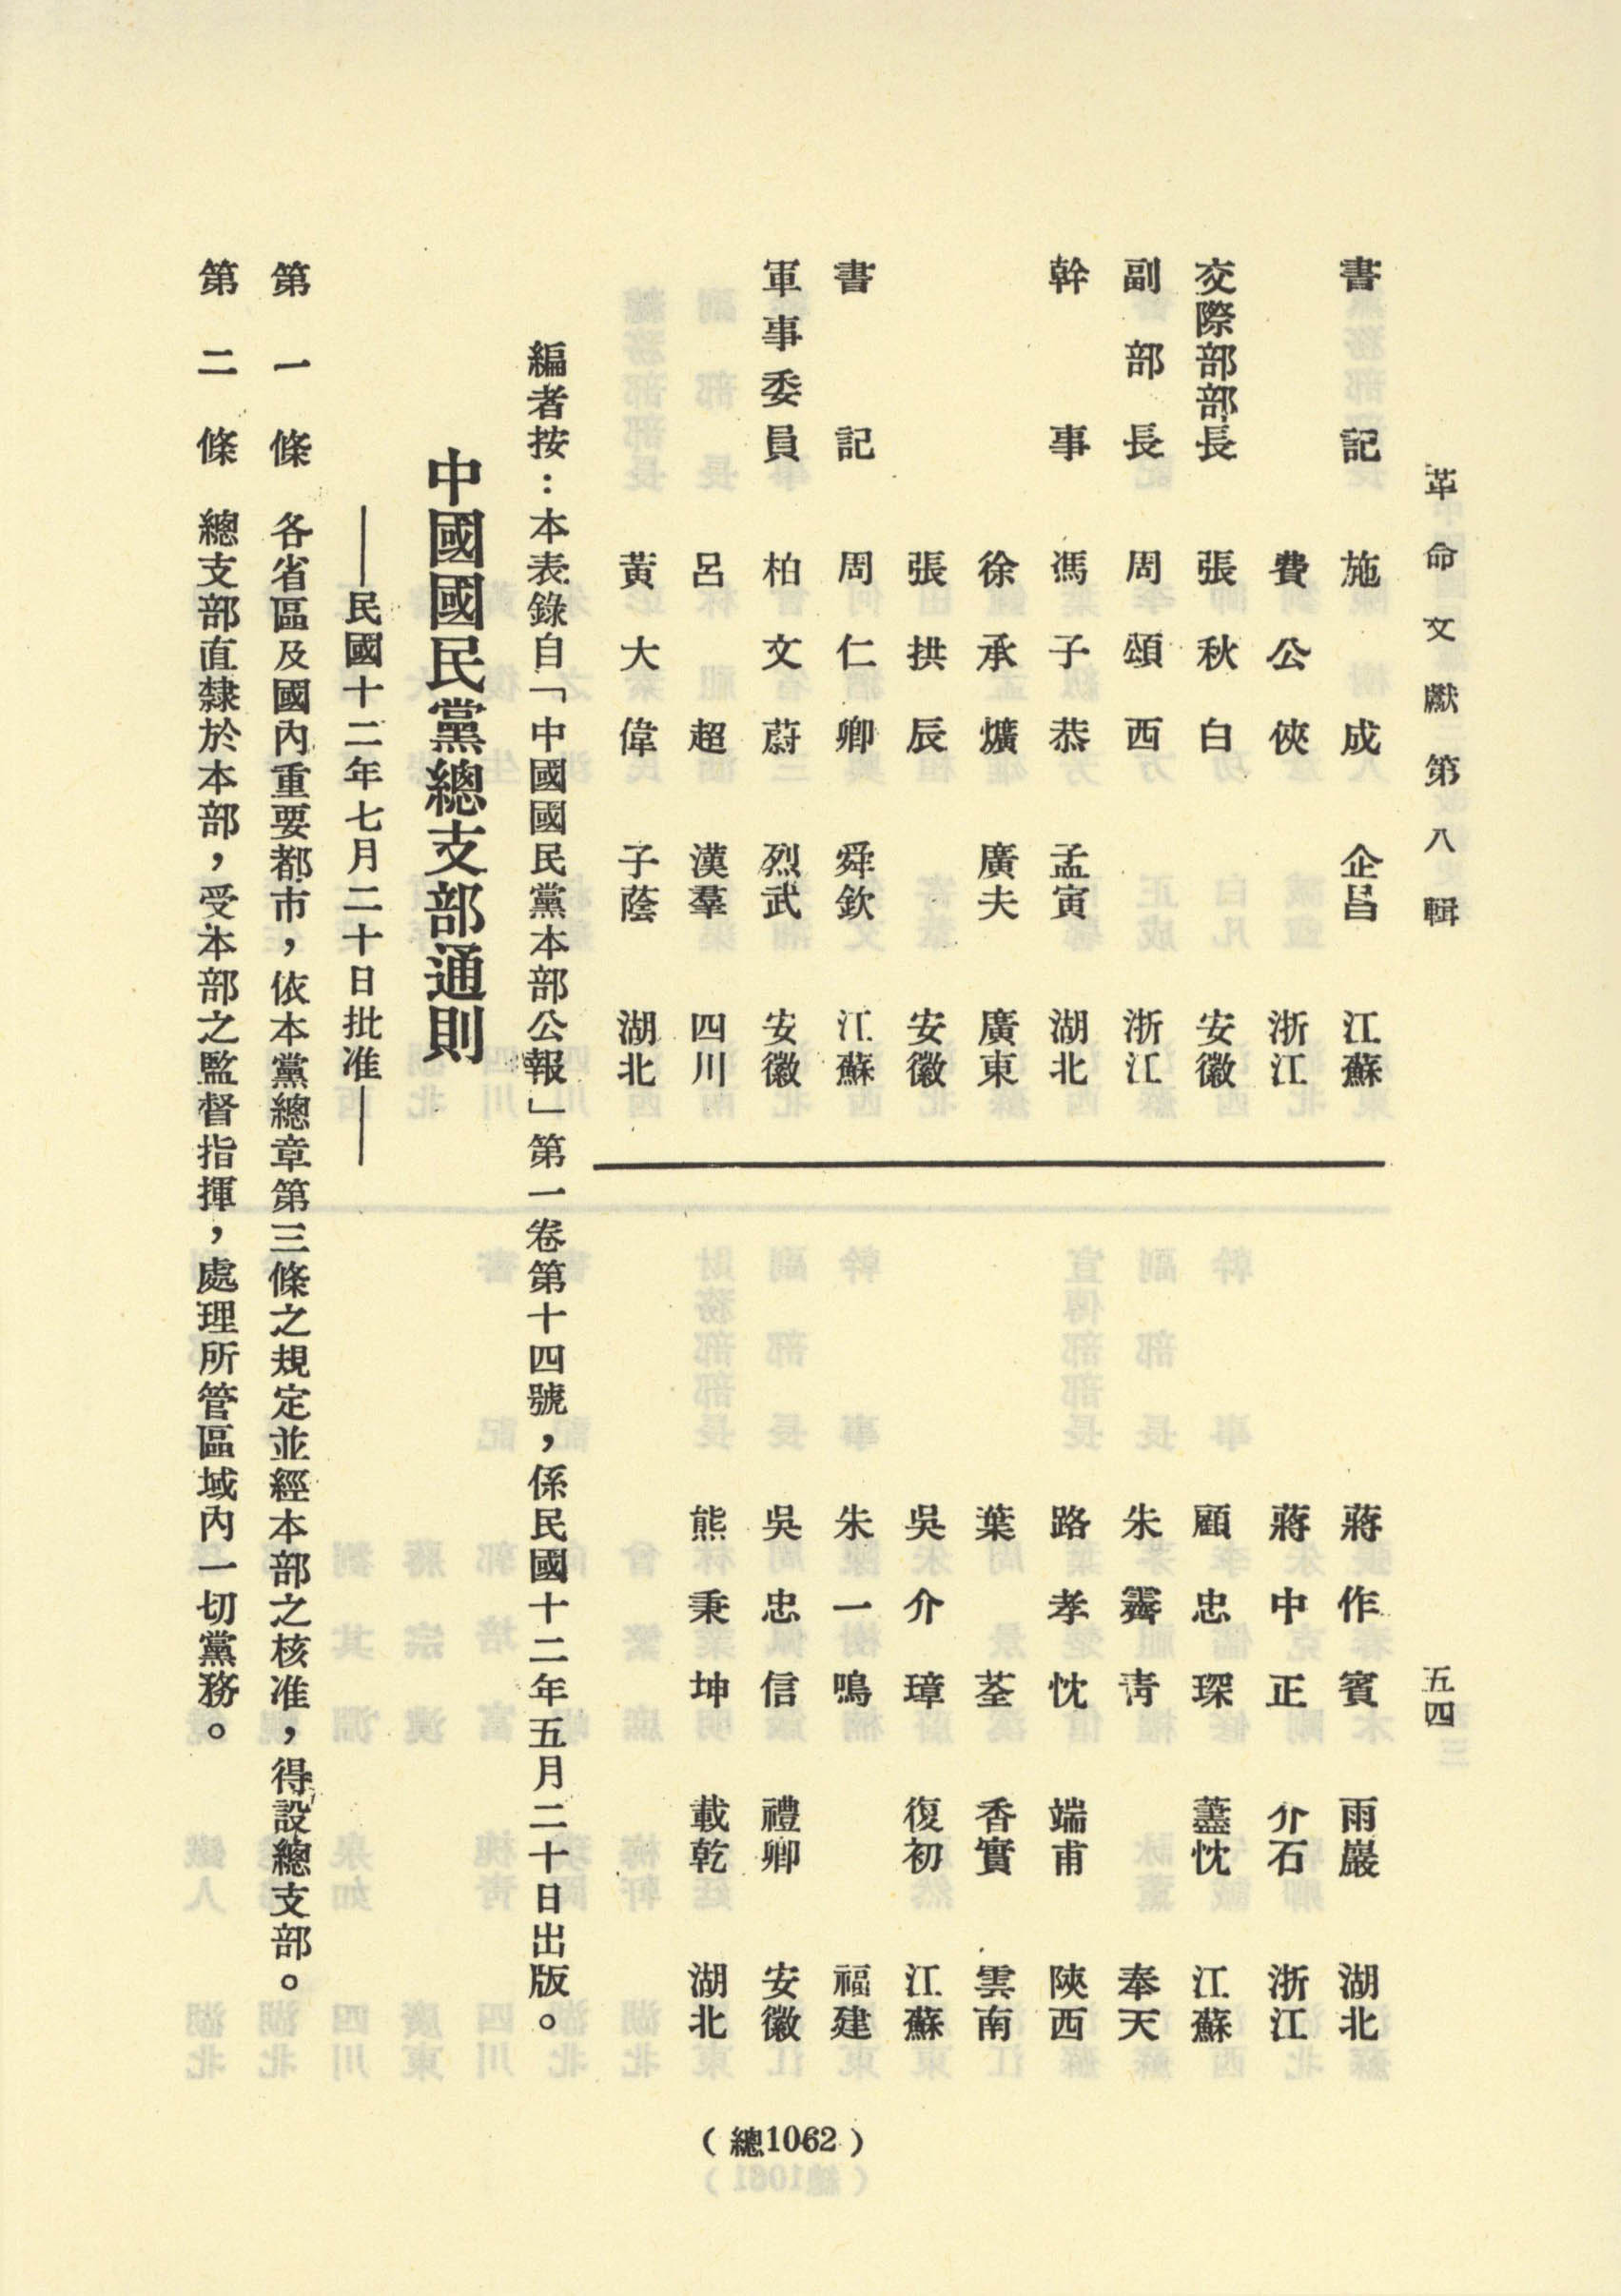 革命文獻第八輯
五四
書記　施成　企昌　江蘇
費公俠　浙江
交際部部長　張秋白　安徽
副部長　周頌西　浙江
幹事　馮子恭　孟寅　湖北
徐承爌　廣夫　廣東
張拱辰　安徽
書記　周仁卿　舜欽　江蘇
軍事委員　柏文蔚　烈武　安徽
呂超　漢羣　四川
黃大偉　子蔭　湖北
蔣作賓　雨巖　湖北
蔣中正　介石　浙江
顧忠琛　藎忱　江蘇
朱霽青　奉天
路孝忱　端甫　陝西
葉荃　香實　雲南
吳介璋　復初　江蘇
朱一鳴　福建
吳忠信　禮卿　安徽
熊秉坤　載乾　湖北
編者按：本表錄自「中國國民黨本部公報」第一卷第十四號，係民國十二年五月二十日出版。
中國國民黨總支部通則
——民國十二年七月二十日批准——
第一條　各省區及國內重要都市，依本黨總章第三條之規定並經本部之核准，得設總支部。
第二條　總支部直隸於本部，受本部之監督指揮，處理所管區域內一切黨務。
（總1062）